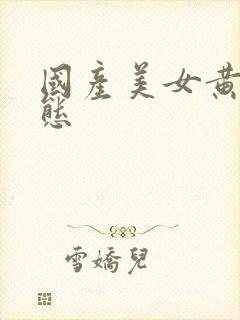 國產美女黃
態
雪嬌兒